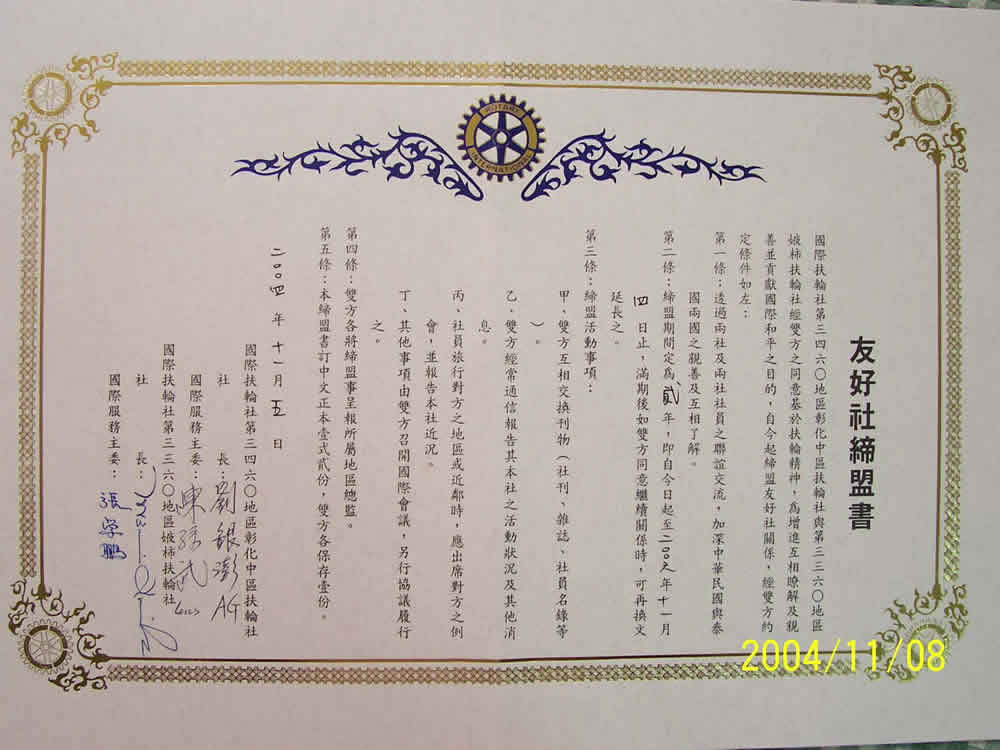 ROTARY
INTERNATIONAL
友好社締盟書
國際扶輪社第三四六〇地區彰化中區扶輪社與第三三六〇地區
娍柿扶輪社經雙方之同意基於扶輪精神，為增進互相瞭解及親
善並貢獻國際和平之目的，自今起締盟友好社關係，經雙方約
定條件如左：
第一條：透過兩社及兩社社員之聯誼交流，加深中華民國與泰
國兩國之親善及互相了解。
第二條：締盟期間定為貳年，即自今日起至二〇〇六年十一月
四日止，滿期後如雙方同意繼續關係時，可再換文
延長之。
第三條：締盟活動事項：
甲、雙方互相交換刊物（社刊、雜誌、社員名錄等
）。
乙、雙方經常通信報告其本社之活動狀況及其他消
息。
丙、社員旅行對方之地區或近鄰時，應出席對方之例
會，並報告本社近況。
丁、其他事項由雙方召開國際會議，另行協議履行
之。
第四條：雙方各將締盟事呈報所屬地區總監。
第五條：本締盟書訂中文正本壹式貳份，雙方各保存壹份。
二〇〇四年十一月五日
國際扶輪社第三四六〇地區彰化中區扶輪社
社長：劉銀澎 AG
國際服務主委：
國際扶輪社第三三六〇地區娍柿扶輪社
社長：
國際服務主委：張學鵬
2004/11/08